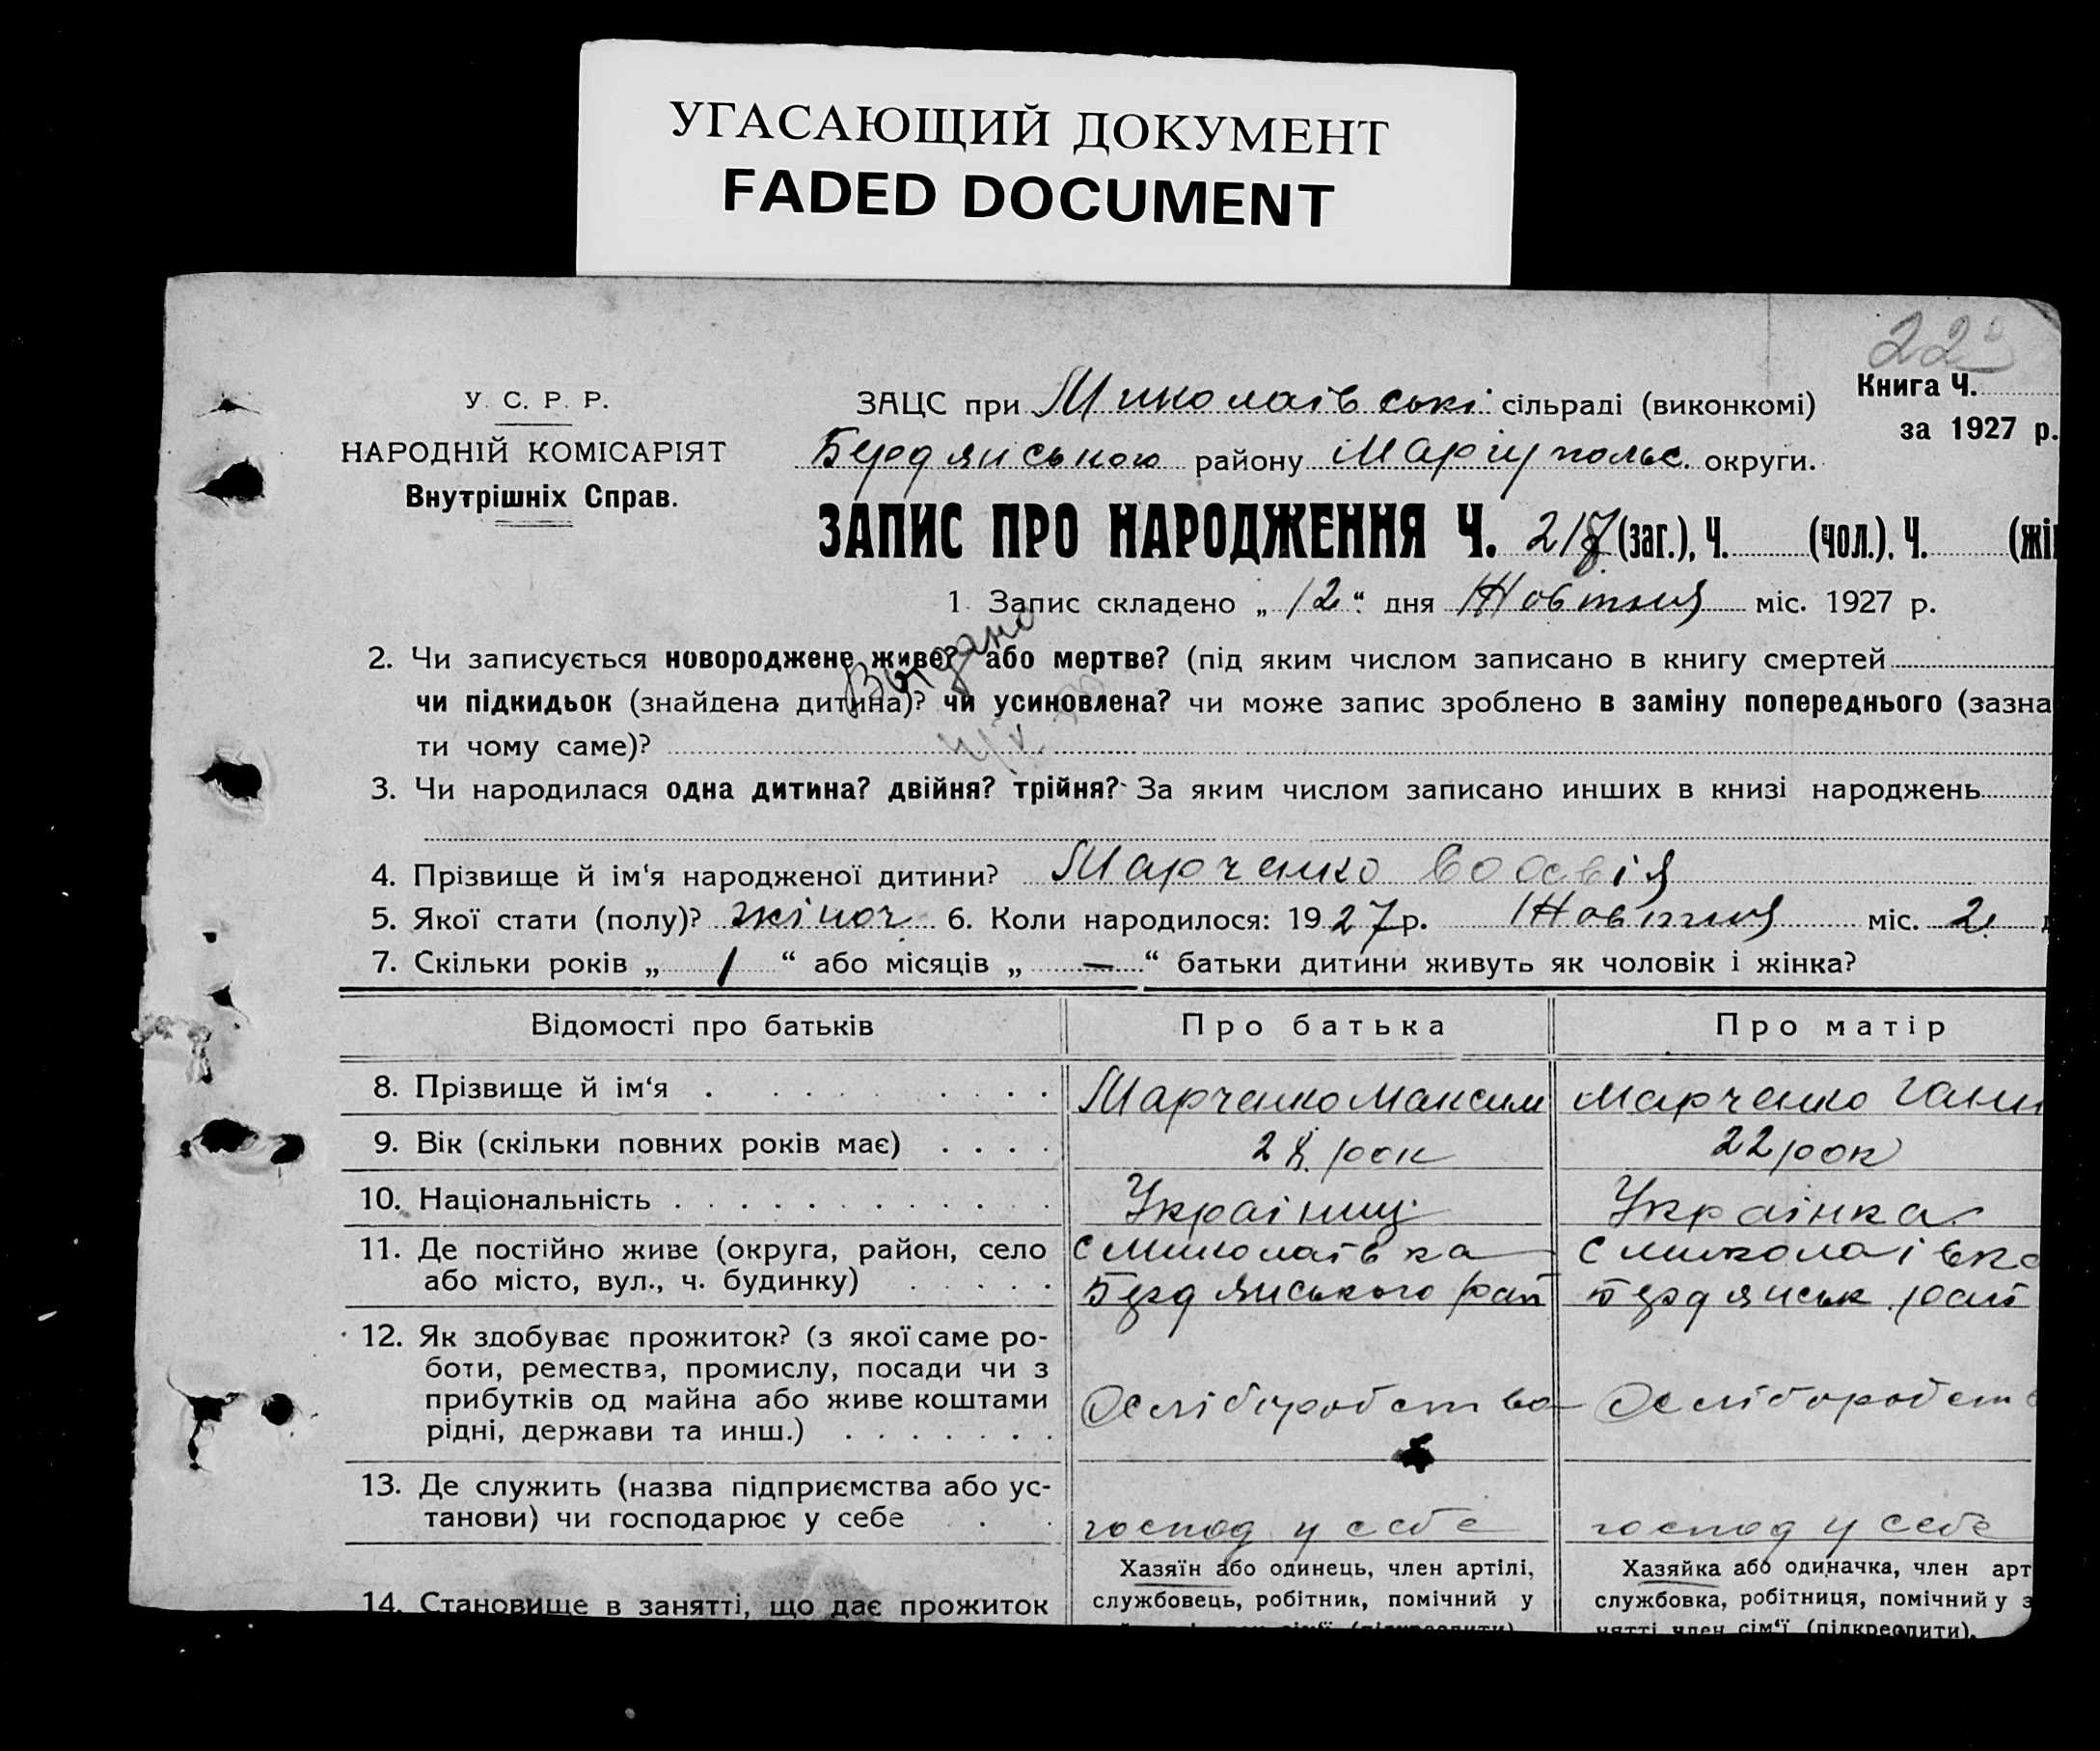 УГАСАЮЩИЙ ДОКУМЕНТ
FADED DOCUMENT
22
У. С. Р. Р.
НАРОДНІЙ КОМІСАРІЯТ
Внутрішніх Справ.
Книга Ч.
за 1927 р.
ЗАЦС при Миколаївські сільраді (виконкомі)
Бердянського району Маріупольс. округи.
ЗАПИС ПРО НАРОДЖЕННЯ Ч. 217 (заг.), Ч. (чол.). Ч. (жі
1. Запис складено „ 12 “ дня Жовтня міс. 1927 р.
Выдано
2. Чи записується новороджене живе? або мертве? (під яким числом записано в книгу смертей
чи підкидьок (знайдена дитина)? чи усиновлена? чи може запис зроблено в заміну попереднього (зазна
ти чому саме)?
3. Чи народилася одна дитина? двійня? трійня? За яким числом записано инших в книзі народжень
4. Прізвище й ім‘я народженої дитини? Марченко
5. Якої стати (полу)? жіноч. 6. Коли народилося: 1927 р. Жовтня міс. 2
7. Скільки років „ 1 “ або місяців „ — “ батьки дитини живуть як чоловік і жінка?
Відомості про батьків Про батька Про матір
8. Прізвище й ім‘я Марченко Максим Марченко Ганн
9. Вік (скільки повних років має) 28 рок 22 рок
10. Національність Українец Українка
11. Де постійно живе (округа, район, село с Миколаївка с Миколаівка
або місто, вул., ч. будинку) Бердянського рай Бердянськ рай
12. Як здобуває прожиток? (з якої саме ро-
боти, ремества, промислу, посади чи з
прибутків од майна або живе коштами Хліборобство Хліборобств
рідні, держави та инш.)
13. Де служить (назва підприємства або ус-
танови) чи господарює у себе господ у себе господ у себе
Хазяїн або одинець, член артілі, Хазяйка або одиначка, член арт
14. Становище в занятті, що дає прожиток службовець, робітник, помічний у службовка, робітниця, помічний у з
сім‘ї (підкреслити) нятті член сім‘ї (підкреслити).